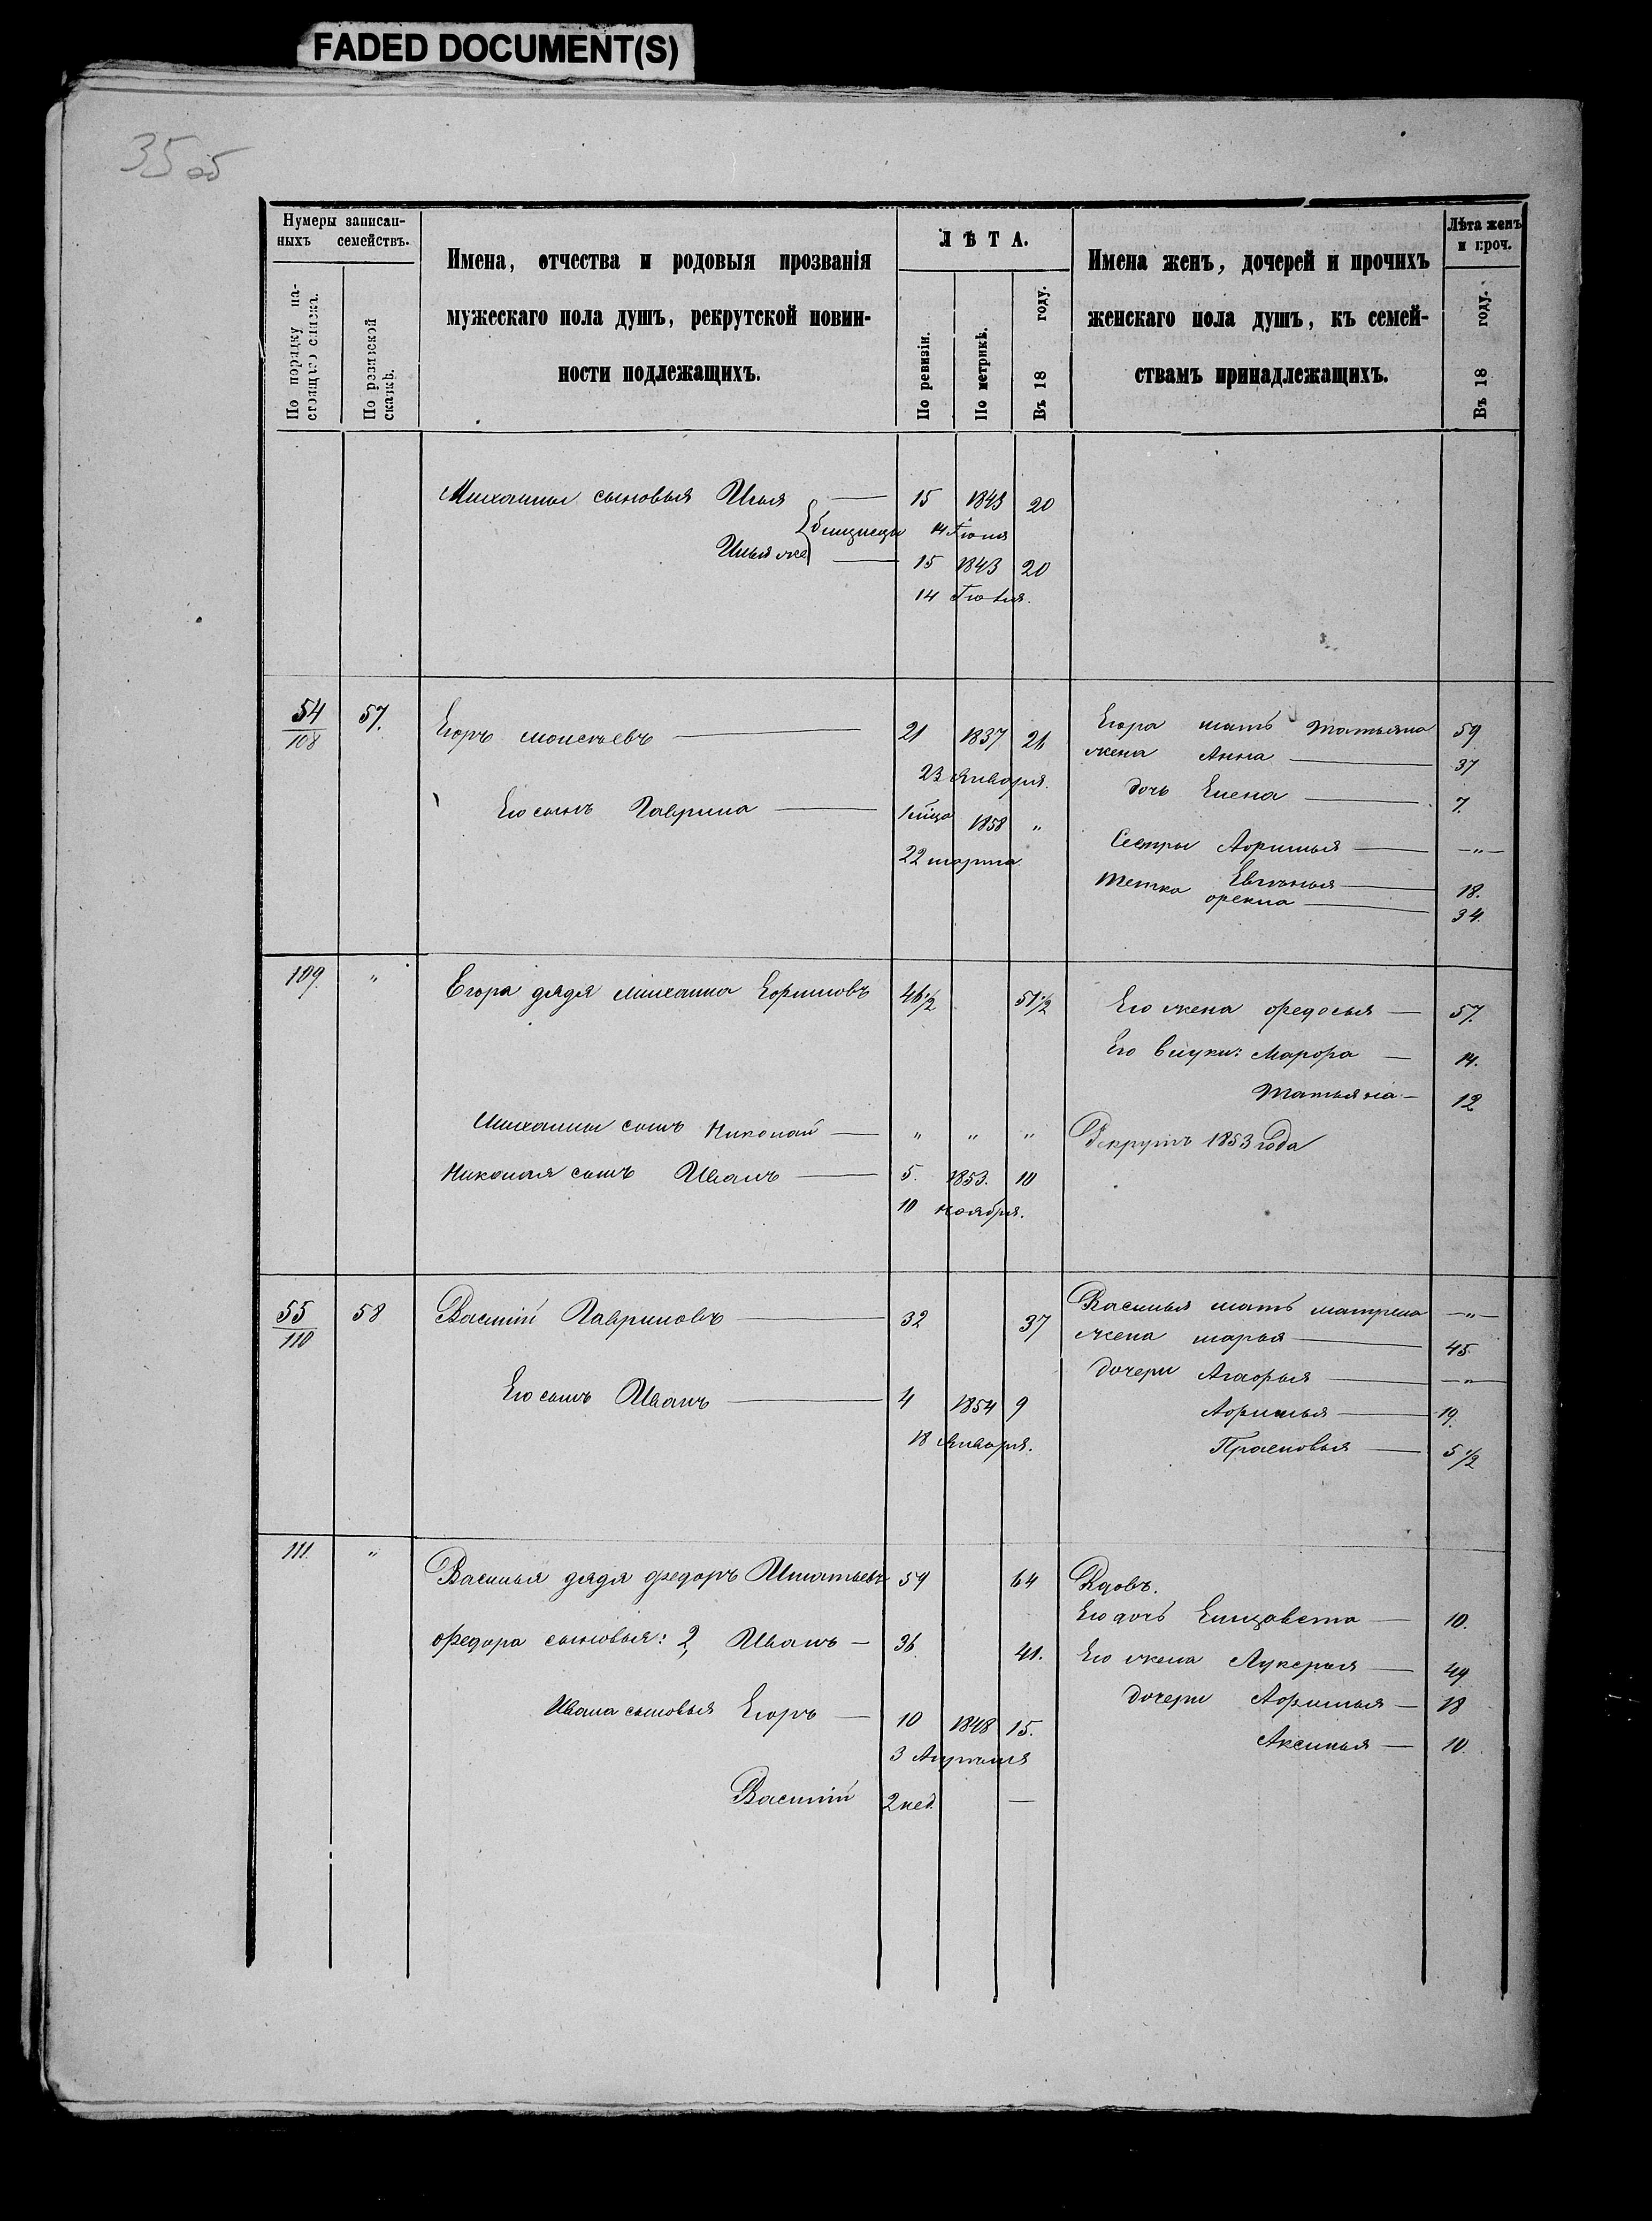 FADED DOCUMENT(S)
35 об
Нумеры записан-
ныхъ семействъ.
По порядку на-
стоящаго списка.
По ревизской
сказкѣ.
Имена, отчества и родовыя прозванія
мужескаго пола душъ, рекрутской повин-
ности подлежащихъ.
ЛѢТА.
По ревизіи.
По метрикѣ.
Въ 18 году.
Имена женъ, дочерей и прочихъ
женскаго пола душъ, къ семей-
ствамъ принадлежащихъ.
Лѣта женъ
и проч.
Въ 18 году.
Михаилы сыновья Илья — 15 1843 20
близнецы 14 Іюня
Илья же — 15 1843 20
14 Іюня.
54/108 57. Егоръ Моисеевъ — 21 1837 26
23 Января.
Его сынъ Гаврила — 1 мѣца 1858 "
22 марта.
Егора мать Татьяна 59
жена Анна — 37
дочь Елена — 7.
Сестры Афимья — -"-
Евгѣнья — 18.
тетка Фекла — 34.
109 " Егора дядя Михаила Ефимовъ 46 1/2 51 1/2
Его жена Федосья — 57.
Его внуки: Марфа — 14.
Татьяна — 12
Михаилы сынъ Николай — " " " Рекрутъ 1853 года
Николая сынъ Иванъ — 5. 1853. 10
10 ноября.
55/110 58 Василій Гавриловъ — 32 37
Василья мать Матрена -"-
жена Марья — 45.
дочери Агафья — -"-
Его сынъ Иванъ — 4 1854 9
18 Января.
Афимья — 19.
Прасковья — 5 1/2
111. " Василья дядя Федоръ Игнатьевъ 59 64 Вдовъ.
Его дочь Елизавета — 10.
Федора сыновья: 2, Иванъ — 36. 41. Его жена Лукерья — 49
Ивана сыновья Егоръ — 10 1848 15.
3 Апрѣля
дочери Афимья — 18
Аксинья — 10.
Василій 2 нед. —